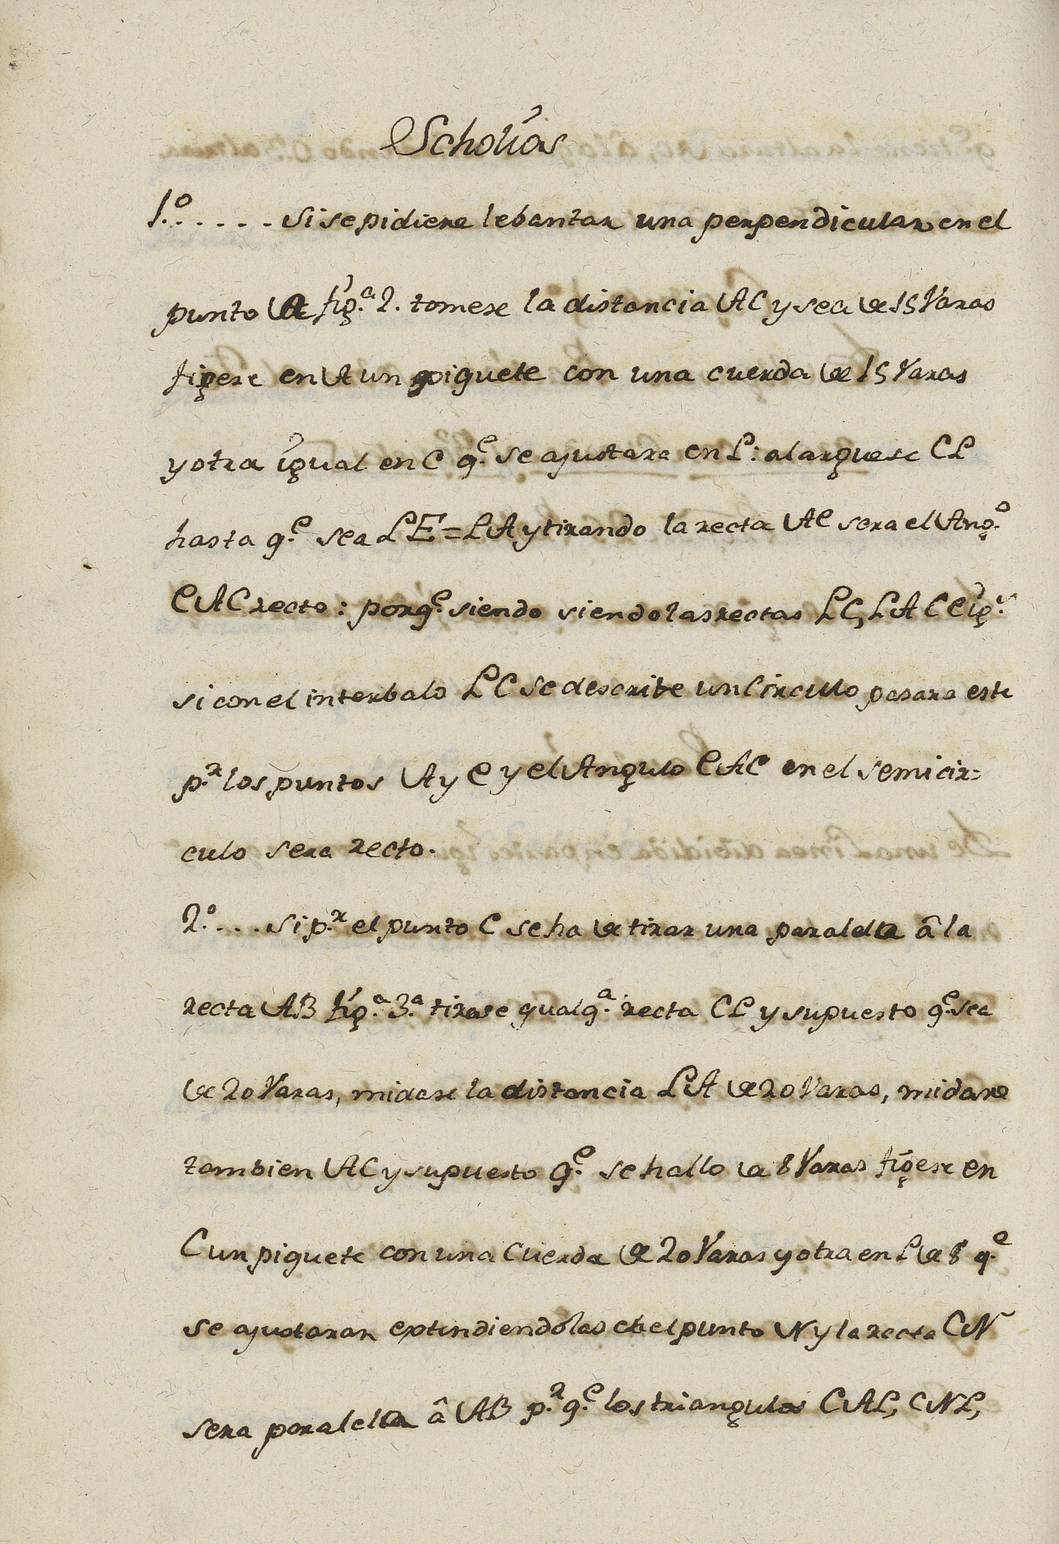 Scholías
1.º..... si se pidiere lebantar una perpendicular en el
punto A fig.ª 2. tomese la distancia AC y sea de 15 Varas
figese en A un piquete con una cuerda de 15 Varas
y otra igual en C q.e se ajustara en L: alarguese CL
hasta q.e sea LE=LA y tirando la recta AE sera el Ang.o
EAC recto: porq.e siendo siendo las rectas LC, LA CE ig.s
si con el interbalo LC se describe un Circulo pasara este
p.r los puntos A y E y el Angulo EAC en el semicir=
culo sera recto.
2.º.... si p.r el punto C se ha de tirar una paralela â la
recta AB fig.ª 3.ª tirese qualq.a recta CL y supuesto q.e sea
de 20 Varas, midase la distancia LA de 20 Varas, midase
tambien AC y supuesto q.e se hallo de 8 Varas fígese en
C un piquete con una Cuerda de 20 Varas y otra en L de 8 q.e
se ajustaran extendiendolas en el punto N y la recta CN
sera paralela â AB p.r q.e los triangulos CAL, CNL,